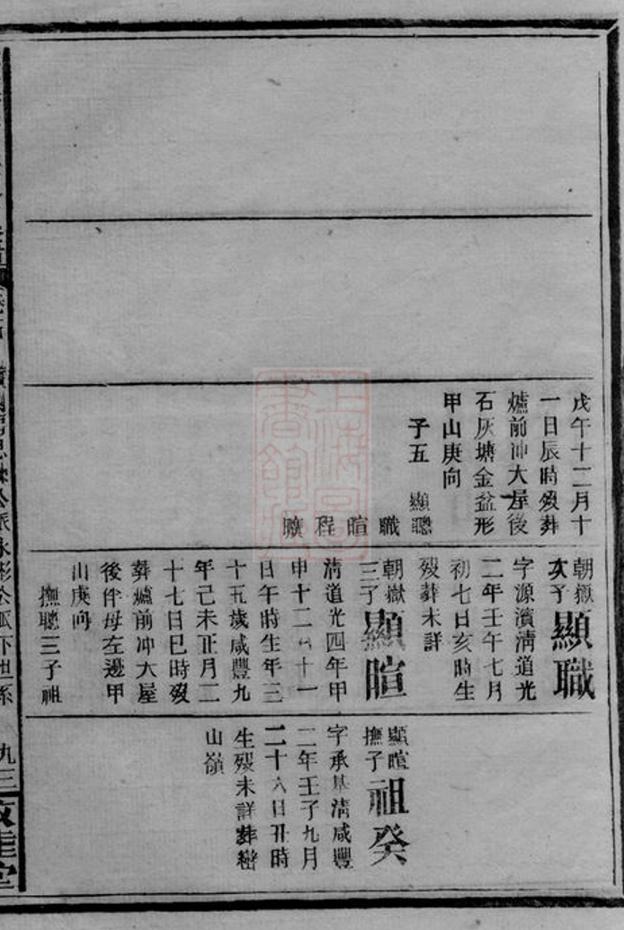 戊午十二月十
一日辰時歿葬
爐前冲大屋後
石灰塘金盆形
甲山庚向
子五 顯聰
職暄程曠
朝嶽
次子
顯職
字源濱淸道光
二年壬午七月
初七日亥時生
歿葬未詳
朝嶽
三子
顯暄
淸道光四年甲
申十二月十一
日午時生年三
十五歲咸豐九
年己未正月二
十七日巳時歿
葬爐前冲大屋
後伴母左邊甲
山庚向
撫聰三子祖
顯暄
撫子
祖癸
字承基淸咸豐
二年壬子九月
二十六日丑時
生歿未詳葬
山嶺
九三